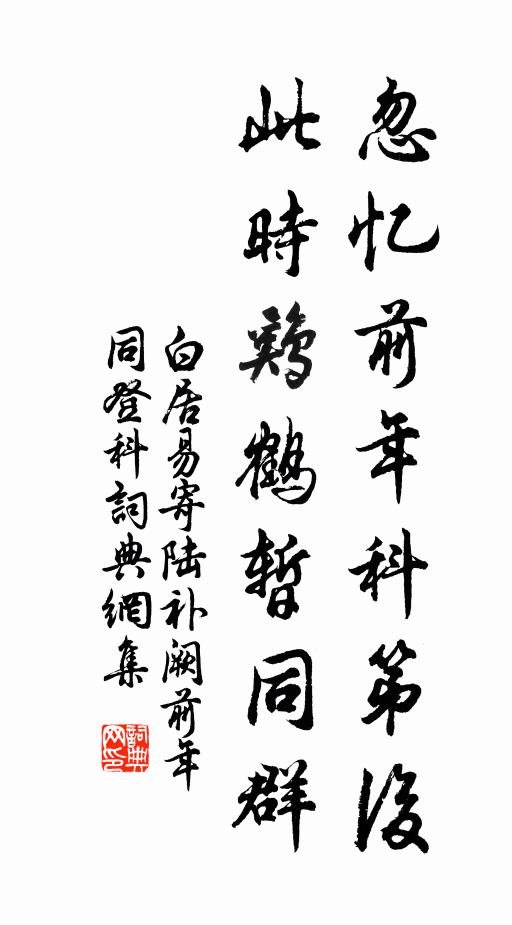 忽忆前年科第後
此時鷄鶴暫同群
白居易寄陆补阙前年
同登科詞典網集
詞典网印